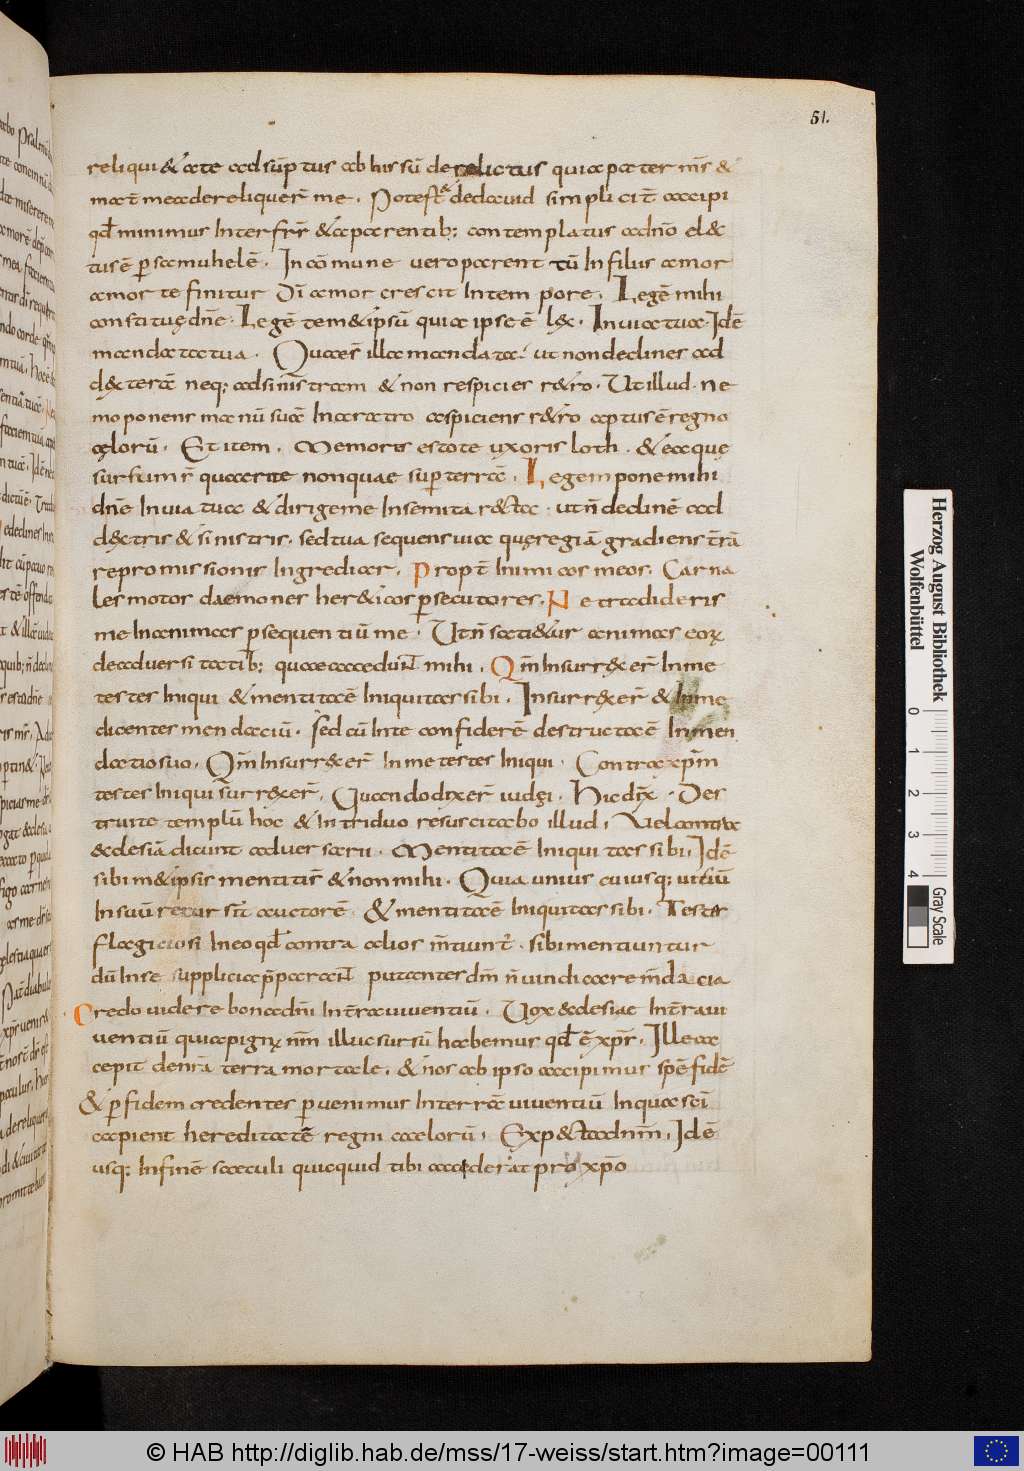 51.
reliqui & a te adsūptus ab his sū derelictus quia pater m̄s &
mat̄ mea dereliquer̄ me. Potest & de dauid simplicit̄ accipi
qd̄ minimus inter fr̄s & a parentib; contemplatus a dn̄o el&
tus ē p samuhelē. In cōmune uero parentū in filius amor
amor te finitur Dī amor crescit in tempore. Legē mihi
constitue dn̄e. Legē tem&ipsū quia ipse ē lęx. In uia tua. Idē
mandata tua. Quaer̄ illa mandata. ut non declines ad
dęxterā neq; ad sinistram & non respicies r&ro. Ut illud. ne
mo ponens manū suā in aratro aspiciens r&ro aptus ē regno
cęlorū. Et item. Memores estote uxoris loth. & ea quę
sursum s̄ quaerite non quae sup terrā. Legem pone mihi
dn̄e in uia tua & dirige me in semita r&cta. ut n̄ declinē ad
dęxtris & sinistris. sed tua sequens uia quę regiā gradiens t̄rā
repromissionis ingrediar. Propt̄ inimicos meos. Carna
les motos daemones her&icos p secutores. Ne tradideris
me in animas p sequentiū me. Ut n̄ sati&ur animas eoꝝ
de aduersitatib; quae accedunt mihi. Qm̄ insurręxer̄ in me
testes iniqui & mentita ē iniquitas sibi. Insurręxer̄ & in me
dicentes mendaciū. sed cū in te confiderē destructa ē in men
datio suo. Qm̄ insurręxer̄ in me testes iniqui. Contra xp̄m
testes iniqui surręxer̄. Quando dixer̄ iudęi. Hic dix̄. Des
truite templū hoc & in triduo resuscitabo illud. Vel contra
&clesiā dicunt aduersarii. Mentita ē iniquitas sibi. Idē
sibi m&ipsis mentitis & non mihi. Quia unius cuiusq; uitiū
in suū retur st̄ auctorē. & mentita ē iniquitas sibi. Testes
flagiciosi in eo qd̄ contra alios m̄tiunt̄. sibi mentiuntur
dū in se supplicia p̄parant putantes dm̄ n̄ uindicare m̄dacia
Credo uidere bona dn̄i in t̄ra uiuentiū. Uox &clesiae in t̄ra ui
uentiū quia pignꝰ nm̄ illuc sursū habemus qd̄ ē xp̄s. Ille ac
cepit de nr̄a terra mortale. & nos ab ipso accipimus spē fidē
& p fidem credentes p uenimus in terrā uiuentiū in qua scī
capient hereditatē regni caelorū. Exp&cta dnm̄. Idē
usq; in finē saeculi quicquid tibi acciderat pro xp̄o
Herzog August Bibliothek
Wolfenbüttel
0 1 2 3 4
Gray Scale
© HAB http://diglib.hab.de/mss/17-weiss/start.htm?image=00111